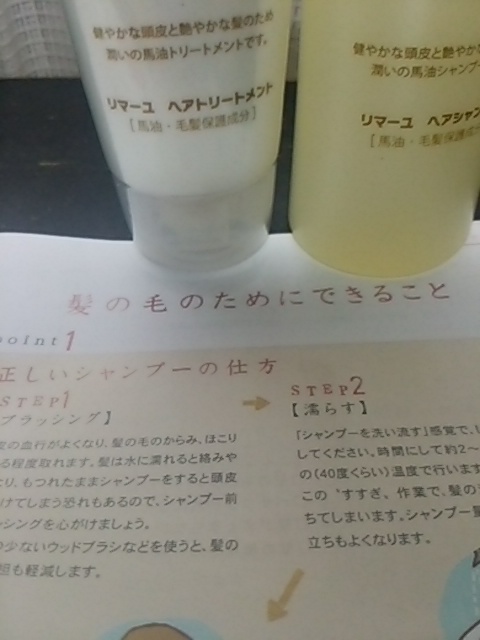 健やかな頭皮と艶やかな髪のため
潤いの馬油トリートメントです。
リマーユ ヘアトリートメント
[馬油・毛髪保護成分]
健やかな頭皮と艶やか
潤いの馬油シャンプー
リマーユ ヘアシャン
[馬油・毛髪保護成
髪の毛のためにできること
point 1
正しいシャンプーの仕方
STEP1
ブラッシング】
皮の血行がよくなり、髪の毛のからみ、ほこり
る程度取れます。髪は水に濡れると絡みや
なり、もつれたままシャンプーをすると頭皮
けてしまう恐れもあるので、シャンプー前
ッシングを心がけましょう。
の少ないウッドブラシなどを使うと、髪の
担も軽減します。
STEP2
【濡らす】
「シャンプーを洗い流す」感覚で、
してください。時間にして約2〜
の(40度くらい)温度で行います
この〝すすぎ〟作業で、髪の
ちてしまいます。シャンプー
立ちもよくなります。